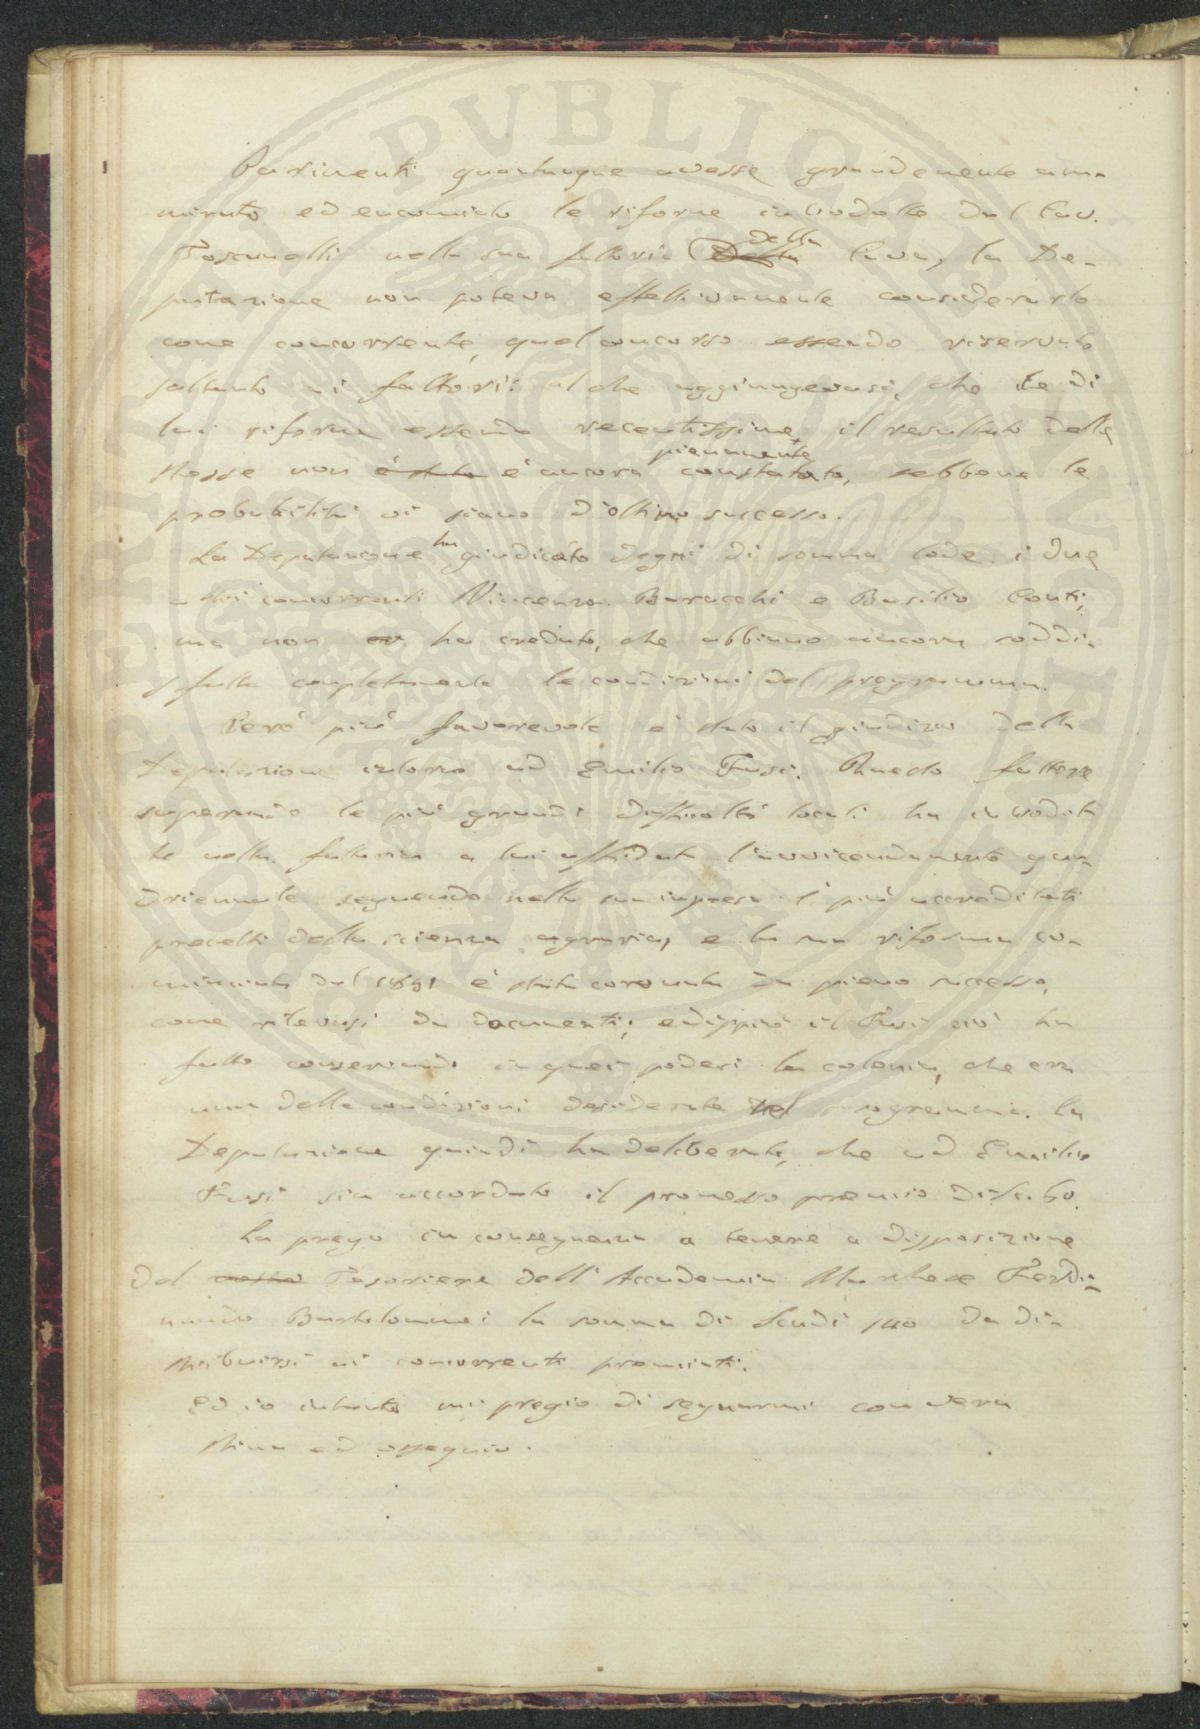 Parimenti quantunque avesse grandemente am-
mirato ed encomiato le riforme introdotte dal Cav.
Toscanelli nella sua fattoria della Cava, la De-
putazione non poteva effettivamente considerarlo
come concorrente, quel concorso essendo riservato
soltanto ai fattori: al che aggiungevasi, che le di
lui riforme essendo recentissime il resultato delle
stesse non è ancora pienamente constatato, sebbene le
probabilità vi siano d'ottimo successo.
La Deputazione ha giudicato degni di somma lode i due
altri concorrenti Vincenzo Baracchi e Basilio Conti,
ma non ha creduto, che abbiano ancora soddi-
sfatte completamente le condizioni del programma.
Però più favorevole è stato il giudizio della
Deputazione intorno ad Emilio Fusi. Questo fattore
superando le più grandi difficoltà locali ha introdot-
to nella fattoria a lui affidata l'avvicendamento qua-
driennale seguendo nella sua impresa i più accreditati
precetti della scienza agraria, e la sua riforma co-
minciata dal 1851 è stata coronata da pieno successo,
come rilevasi da documenti; e di più il Fusi ciò ha
fatto conservando in quei poderi la colonia, che era
una delle condizioni desiderate nel programma. La
Deputazione quindi ha deliberato, che ad Emilio
Fusi sia accordato il promesso premio di Sc. 60.
La prego in conseguenza a tenere a disposizione
del Tesoriere dell'Accademia Marchese Ferdi-
nando Bartolommei la somma di Scudi 140 da di-
stribuirsi ai concorrenti premiati.
Ed io intanto mi pregio di segnarmi con vera
stima ed ossequio.
PVBLICAE